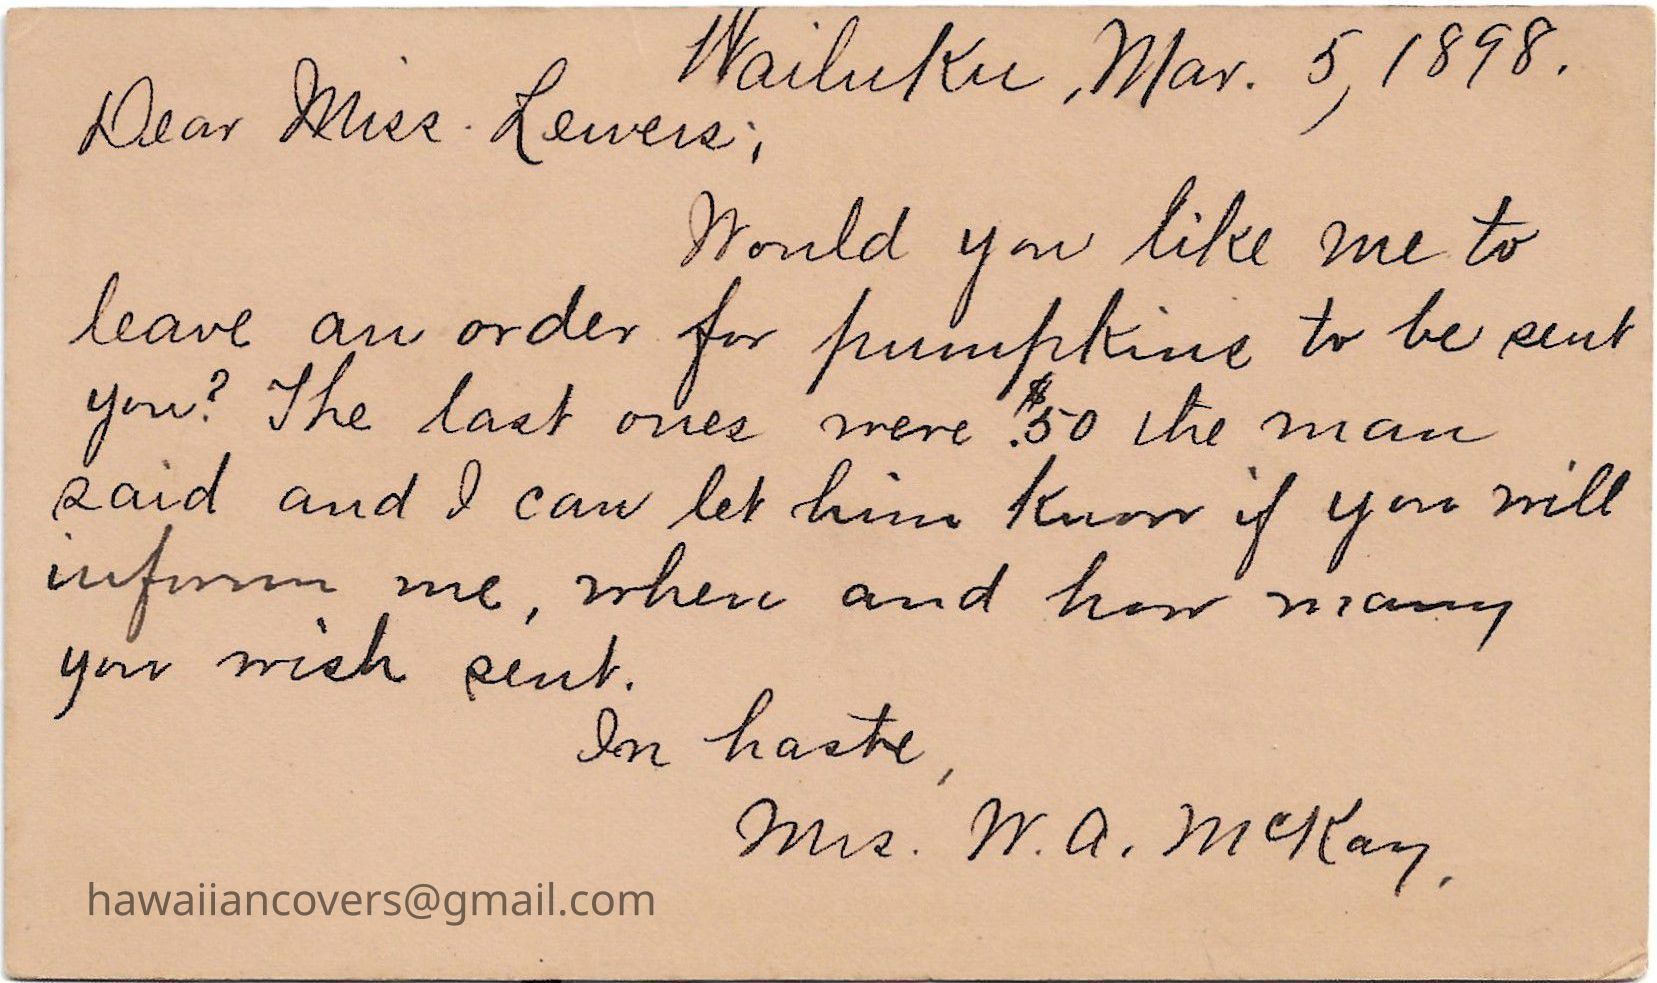 Wailuku, Mar. 5, 1898.
Dear Miss Lewers;
Would you like me to
leave an order for pumpkins to be sent
you? The last ones were $.50 the man
said and I can let him know if you will
inform me, when and how many
you wish sent.
In haste,
Mrs. W. A. McKay.
hawaiiancovers@gmail.com